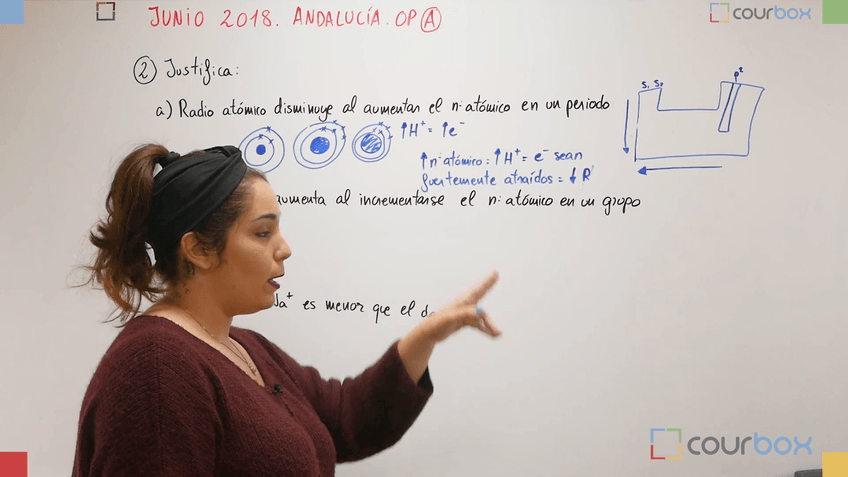 JUNIO 2018. ANDALUCÍA. OP A
courbox
② Justifica:
S₁ S₂
p²
a) Radio atómico disminuye al aumentar el nº atómico en un periodo
↑H⁺ = ↑e⁻
↑nº atómico = ↑H⁺ = e⁻ sean
fuertemente atraídos = ↓R
aumenta al incrementarse el nº atómico en un grupo
Na⁺ es menor que el
courbox